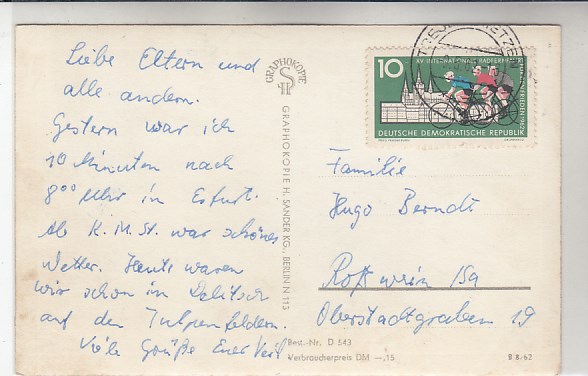 Liebe Eltern und
alle andern.
Gestern war ich
10 Minuten nach
8⁰⁰ Uhr in Erfurt.
Ab K. M. St. war schönes
Wetter. Heute waren
wir schon in Delitsch
auf den Tulpenfeldern.
Viele Grüße Euer
GRAPHOKOPIE
SH
GRAPHOKOPIE H. SANDER KG., BERLIN N 113
10
XV. INTERNATIONALE RADFERNFAHRT
DEUTSCHE DEMOKRATISCHE REPUBLIK
Familie
Hugo Berndt
Roßwein Sa
Oberstadtgraben 19
Best.-Nr. D 543
Verbraucherpreis DM —,15
B 8/62